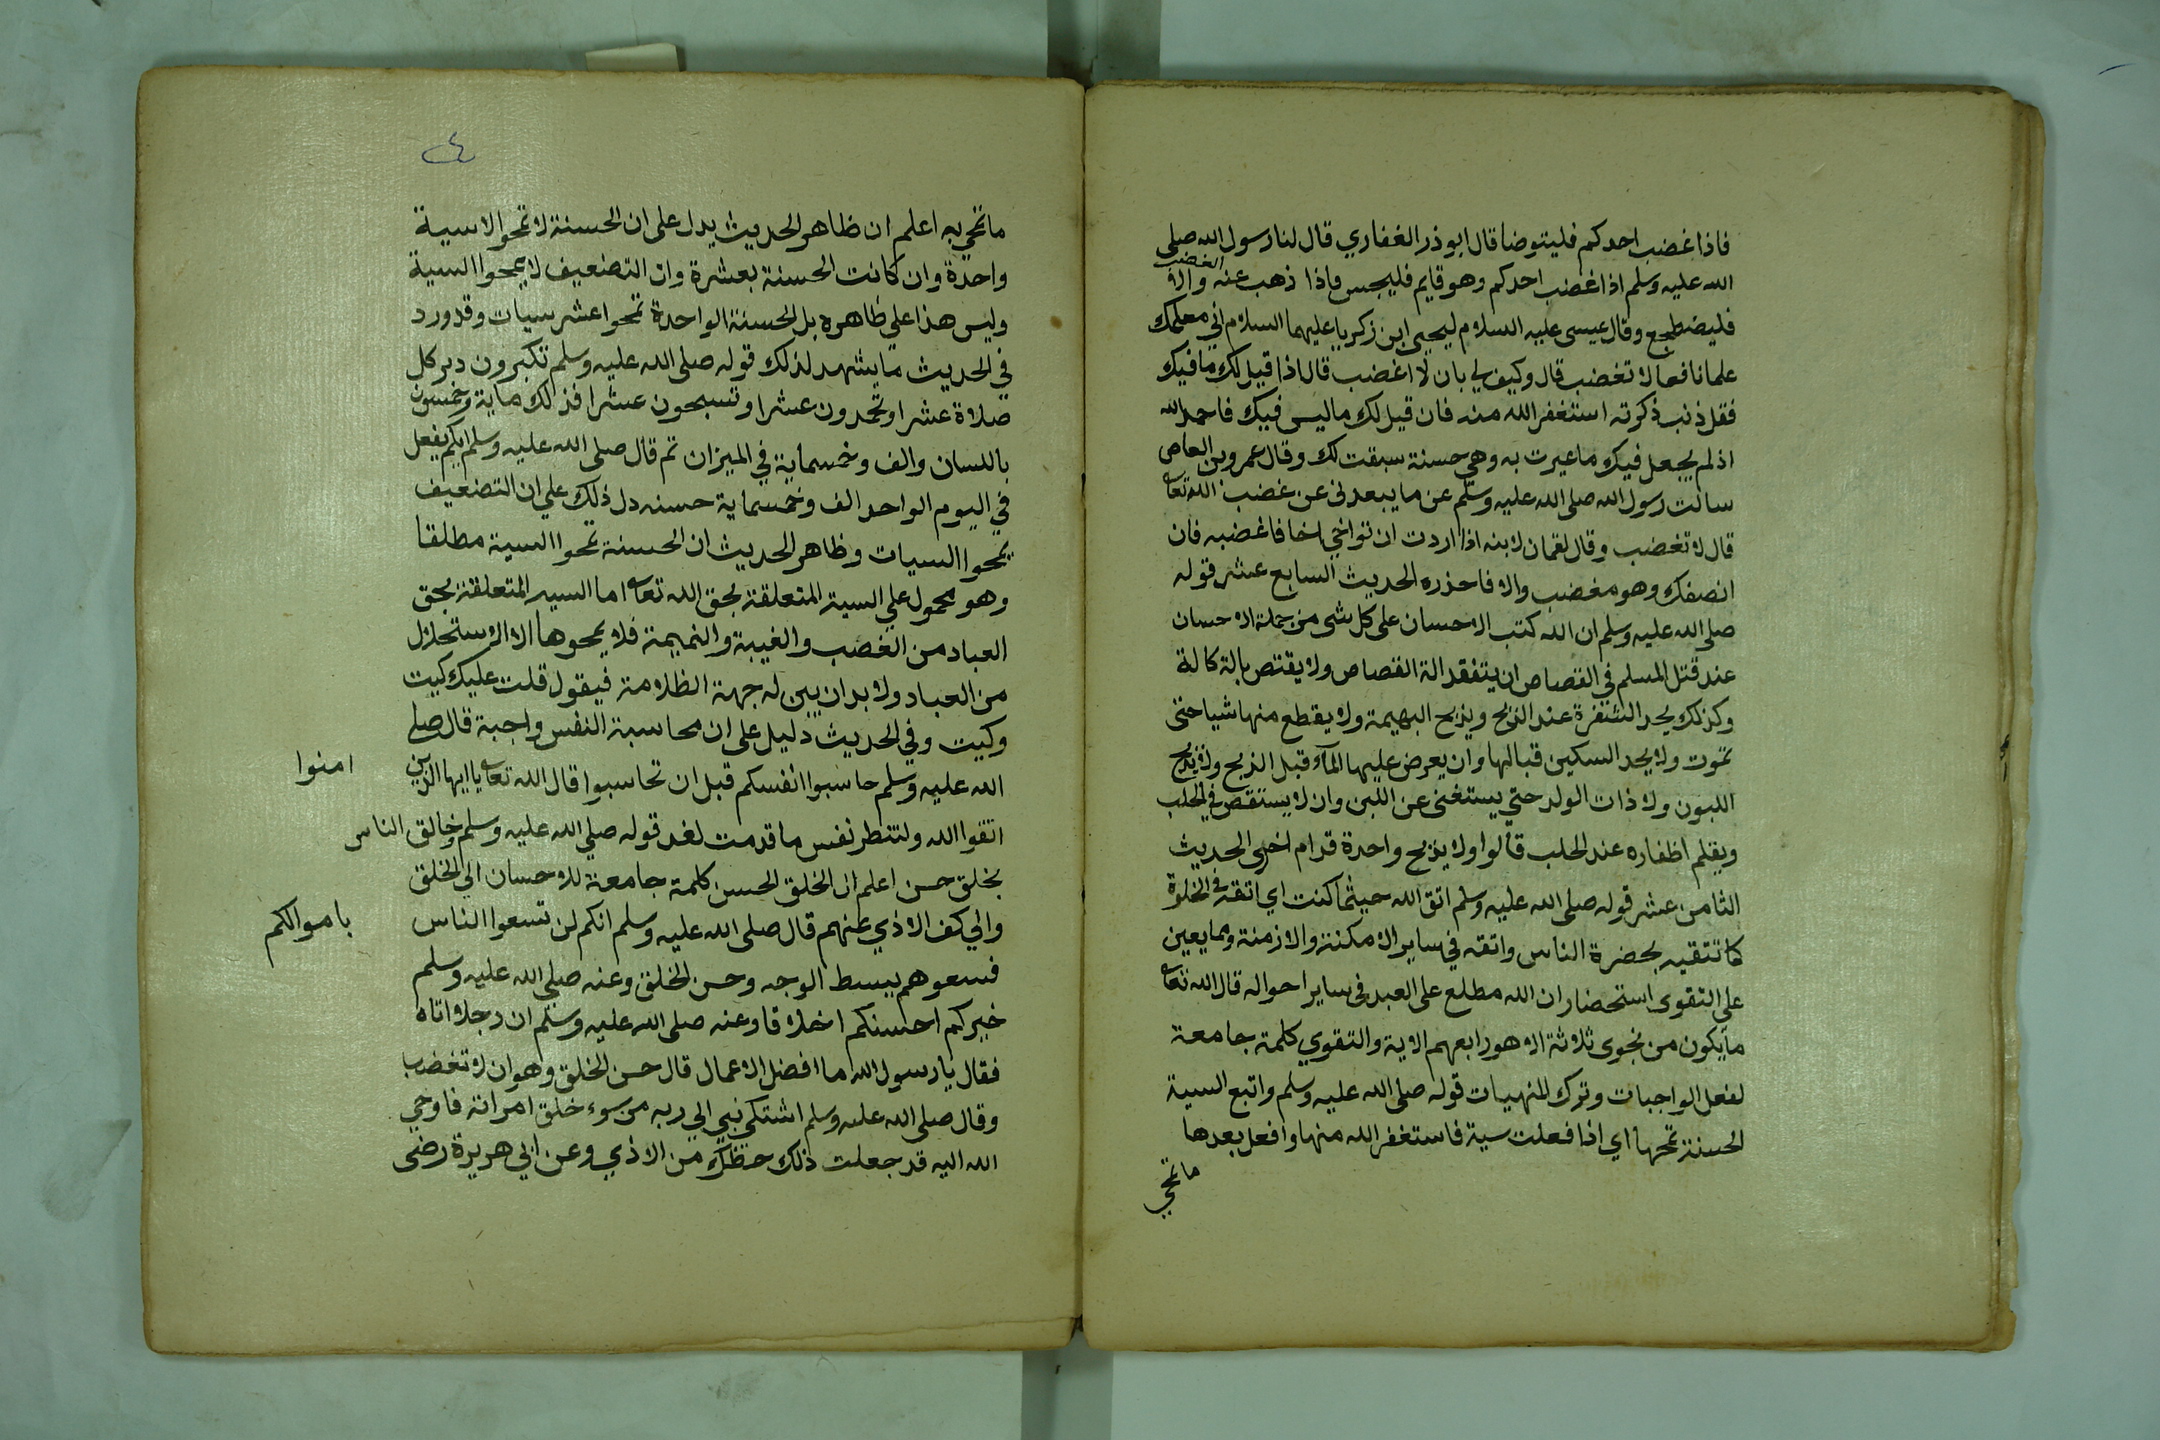 فاذا غضب احدكم فليتوضا قال ابو ذر الغفاري قال لنا رسول الله صلى
الله عليه وسلم اذا غضب احدكم وهو قايم فليجس فاذا ذهب عنه الغضب والا
فليضطجع وقال عيسى عليه السلام ليحيى ابن زكريا عليهما السلام اني معلمك
علما نافعا لا تغضب قال وكيف لي بان لا اغضب قال اذا قيل لك ما فيك
فقل ذنب ذكرته استغفر الله منه فان قيل لك ما ليس فيك فاحمد الله
اذ لم يجعل فيك ما عيرت به وهي حسنة سبقت لك وقال عمرو بن العاص
سالت رسول الله صلى الله عليه وسلم عن ما يبعدني عن غضب الله تعا
قال لا تغضب وقال لقمان لابنه اذا اردت ان تواخي اخا فاغضبه فان
انصفك وهو مغضب والا فاحذره الحديث السابع عشر قوله
صلى الله عليه وسلم ان الله كتب الاحسان على كل شي من جملة الاحسان
عند قتل المسلم في القصاص ان يتفقد الة القصاص ولا يقتص بالة كالة
وكذلك يحد الشفرة عند الذبح ويذبح البهيمة ولا يقطع منها شيا حتى
تموت ولا يحد السكين قبالها وان يعرض عليها المآء قبل الذبح ولا يذبح
اللبون ولا ذات الولد حتي يستغني عن اللبن وان لا يستقص في الحلب
ويقلم اظفاره عند الحلب قالوا ولا يذبح واحدة قدام اخرى الحديث
الثامن عشر قوله صلى الله عليه وسلم اتق الله حيثما كنت اي اتقه في الخلوة
كما تتقيه بحضرة الناس واتقه في ساير الامكنة والازمنة ومما يعين
على التقوى استحضار ان الله مطلع على العبد في ساير احواله قال الله تعا
ما يكون من نجوى ثلاثة الا هو رابعهم الاية والتقوي كلمة جامعة
لفعل الواجبات وترك المنهيات قوله صلى الله عليه وسلم واتبع السية
الحسنة تمحها اي اذا فعلت سية فاستغفر الله منها وافعل بعدها
ما تمحي
٤
ما تمحي به اعلم ان ظاهر الحديث يدل على ان الحسنة لا تمحوا الا سية
واحدة وان كانت الحسنة بعشرة وان التضعيف لا يمحوا السية
وليس هذا على ظاهره بل الحسنة الواحدة تمحوا عشر سيات وقد ورد
في الحديث ما يشهد لذلك قوله صلى الله عليه وسلم تكبرون دبر كل
صلاة عشرا وتحمدون عشرا وتسبحون عشرا فذلك ماية وخمسون
باللسان والف وخمسماية في الميزان ثم قال صلى الله عليه وسلم ايكم يفعل
في اليوم الواحد الف وخمسماية حسنه دل ذلك علي ان التضعيف
يمحوا السيات وظاهر الحديث ان الحسنة تمحوا السية مطلقا
وهو محمول علي السية المتعلقة بحق الله تعا اما السية المتعلقة بحق
العباد من الغضب والغيبة والنميمة فلا يمحوها الا الاستحلال
من العباد ولا بد ان يبين له جهة الظلامة فيقول قلت عليك كيت
وكيت وفي الحديث دليل على ان محاسبة النفس واجبة قال صلى
الله عليه وسلم حاسبوا انفسكم قبل ان تحاسبوا قال الله تعا يا ايها الذين امنوا
اتقوا الله ولتنظر نفس ما قدمت لغد قوله صلي الله عليه وسلم وخالق الناس
بخلق حسن اعلم ان الخلق الحسن كلمة جامعة للاحسان الي الخلق
والي كف الاذي عنهم قال صلى الله عليه وسلم انكم لن تسعوا الناس باموالكم
فسعوهم ببسط الوجه وحسن الخلق وعنه صلى الله عليه وسلم
خيركم احسنكم اخلاقا وعنه صلى الله عليه وسلم ان رجلا اتاه
فقال يا رسول الله ما افضل الاعمال قال حسن الخلق وهو ان لا تغضب
وقال صلى الله عليه وسلم اشتكي نبي الي ربه من سوء خلق امراته فاوحي
الله اليه قد جعلت ذلك حظك من الاذي وعن ابي هريرة رضى